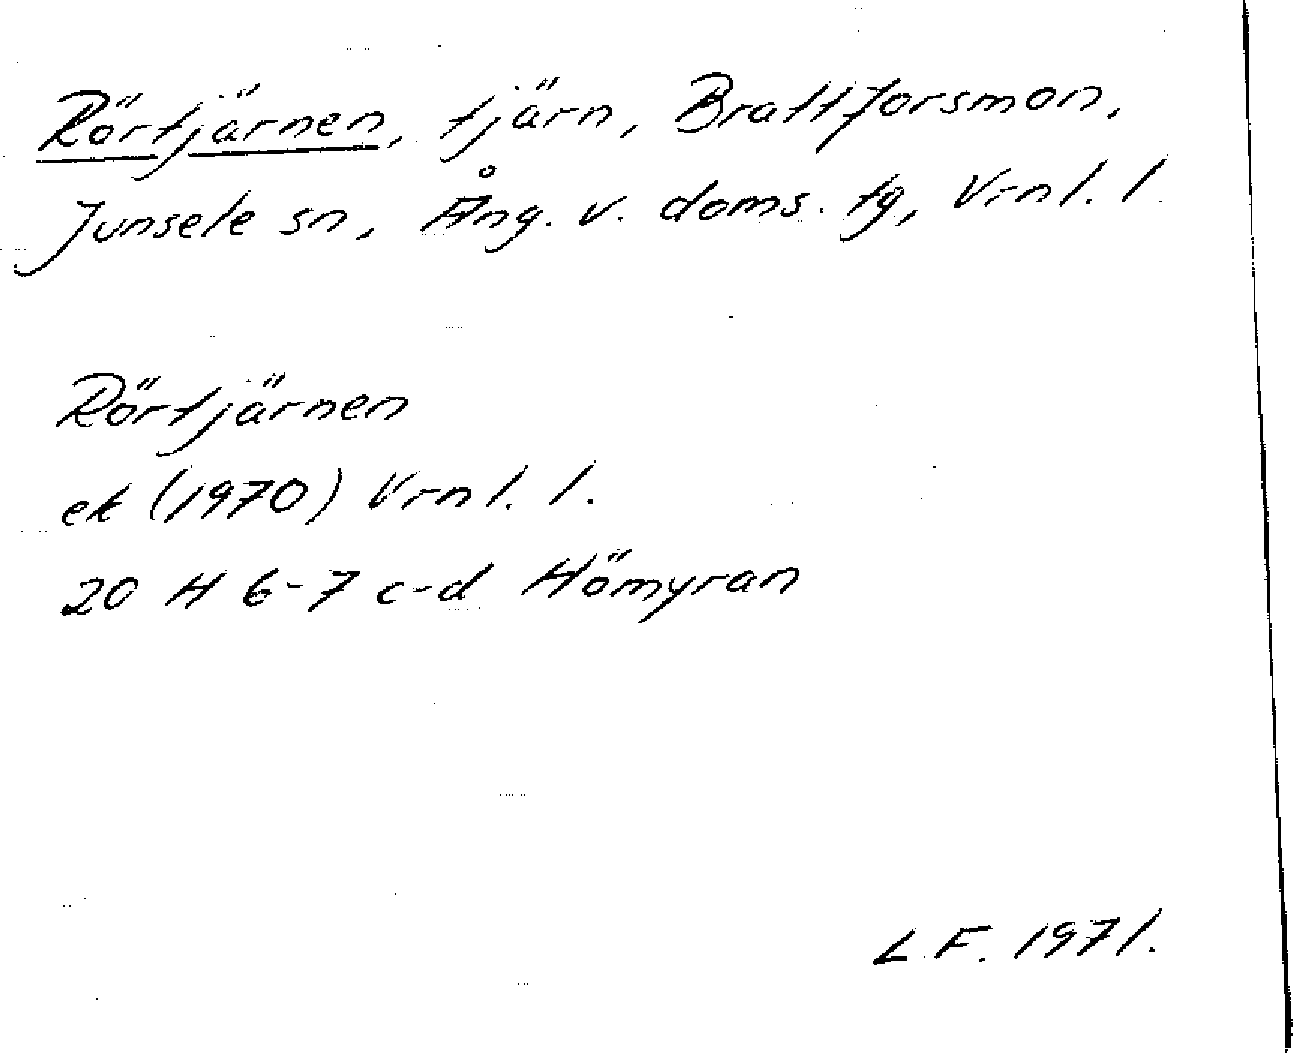 Rörtjärnen, tjärn, Brattforsmon,
Junsele sn, Ång. v. doms. tg, Vrnl. l.
Rörtjärnen
ek (1970) Vrnl. l.
20 H 6-7 c-d Hömyran
L.F. 1971.